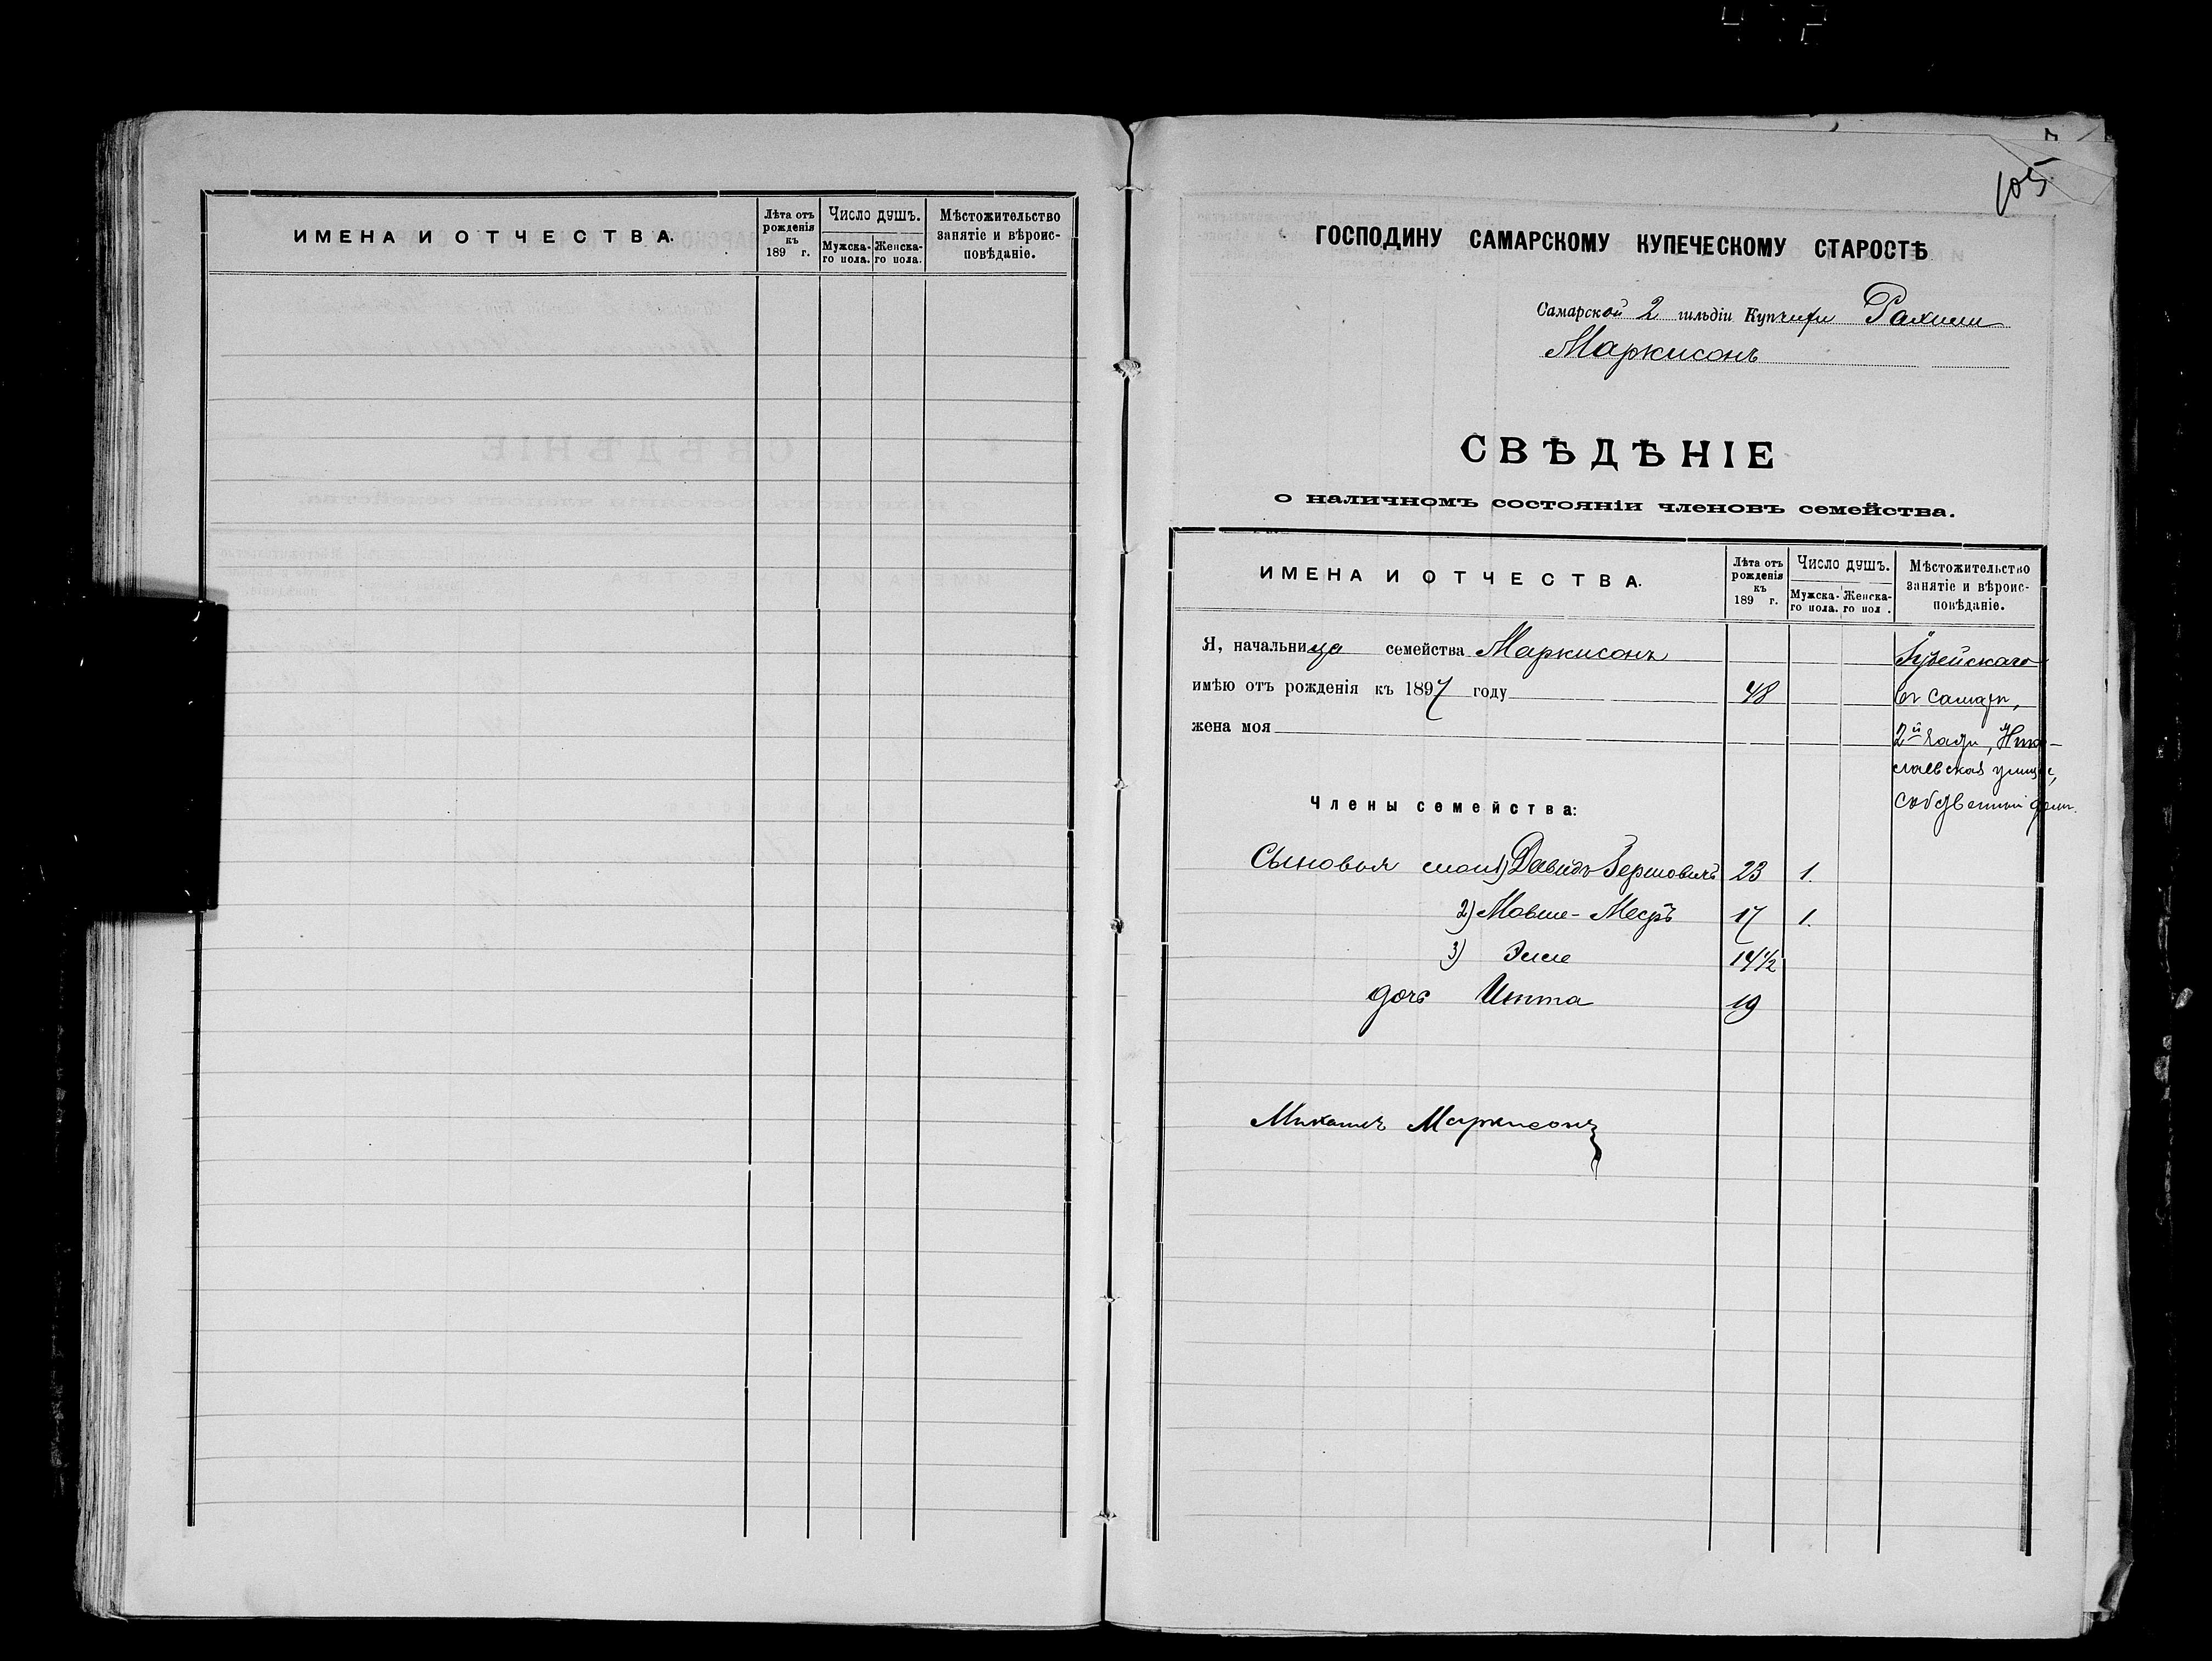 ИМЕНА И ОТЧЕСТВА.
Лѣта отъ рожденія къ 189 г.
Число душъ.
Мужска-го пола.
Женска-го пола.
Мѣстожительство занятіе и вѣроис-повѣданіе.
105
ГОСПОДИНУ САМАРСКОМУ КУПЕЧЕСКОМУ СТАРОСТѢ
Самарской 2 гильдіи Купчихи Рахили
Маркисонъ
СВѢДѢНІЕ
о наличномъ состояніи членовъ семейства.
ИМЕНА И ОТЧЕСТВА.
Лѣта отъ рожденія къ 189 г.
Число душъ.
Мужска-го пола.
Женска-го пол .
Мѣстожительство занятіе и вѣроис-повѣданіе.
Я, начальница семейства Маркисонъ
имѣю отъ рожденія къ 1897 году 48
жена моя
Іудейскаго
въ Самарѣ,
2й части, Нико-
лаевская улица,
собственный домъ.
Члены семейства:
Сыновья мои 1) Давидъ Гершовичъ 23 1.
2) Мовше- 17 1.
3) 14 1/2
дочь Итта 19
Михаилъ Маркисонъ